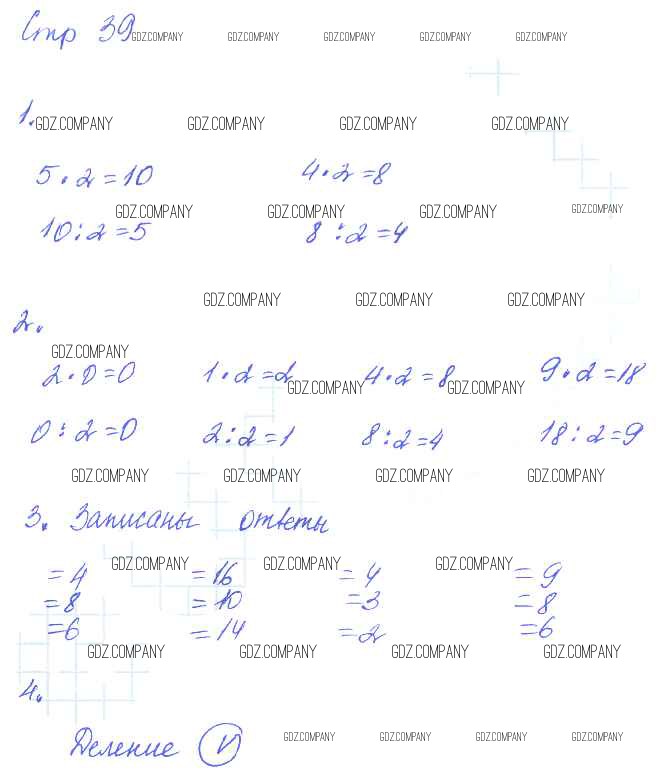 Стр 39 GDZ.COMPANY GDZ.COMPANY GDZ.COMPANY GDZ.COMPANY GDZ.COMPANY
1. GDZ.COMPANY GDZ.COMPANY GDZ.COMPANY GDZ.COMPANY
5·2=10 4·2=8
GDZ.COMPANY GDZ.COMPANY GDZ.COMPANY GDZ.COMPANY
10:2=5 8:2=4
GDZ.COMPANY GDZ.COMPANY GDZ.COMPANY
2.
GDZ.COMPANY
2·0=0 1·2=2 4·2=8 9·2=18
GDZ.COMPANY GDZ.COMPANY
0:2=0 2:2=1 8:2=4 18:2=9
GDZ.COMPANY GDZ.COMPANY GDZ.COMPANY GDZ.COMPANY
3. Записаны ответы
GDZ.COMPANY GDZ.COMPANY GDZ.COMPANY
=4 =16 =4 =9
=8 =10 =3 =8
=6 =14 =2 =6
GDZ.COMPANY GDZ.COMPANY GDZ.COMPANY GDZ.COMPANY
4.
Деление V GDZ.COMPANY GDZ.COMPANY GDZ.COMPANY GDZ.COMPANY